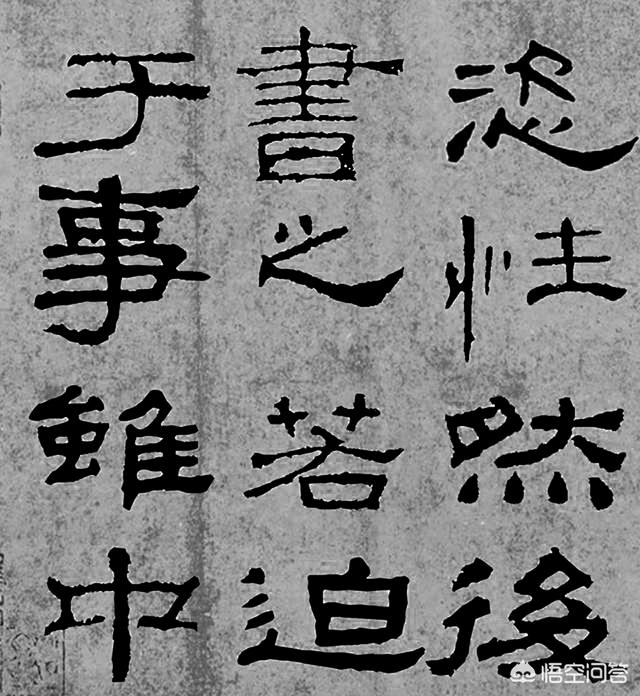 恣性然後
書之若迫
于事雖中
悟空问答